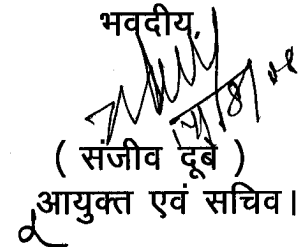 भवदीय,
( संजीव दूबे )
आयुक्त एवं सचिव।